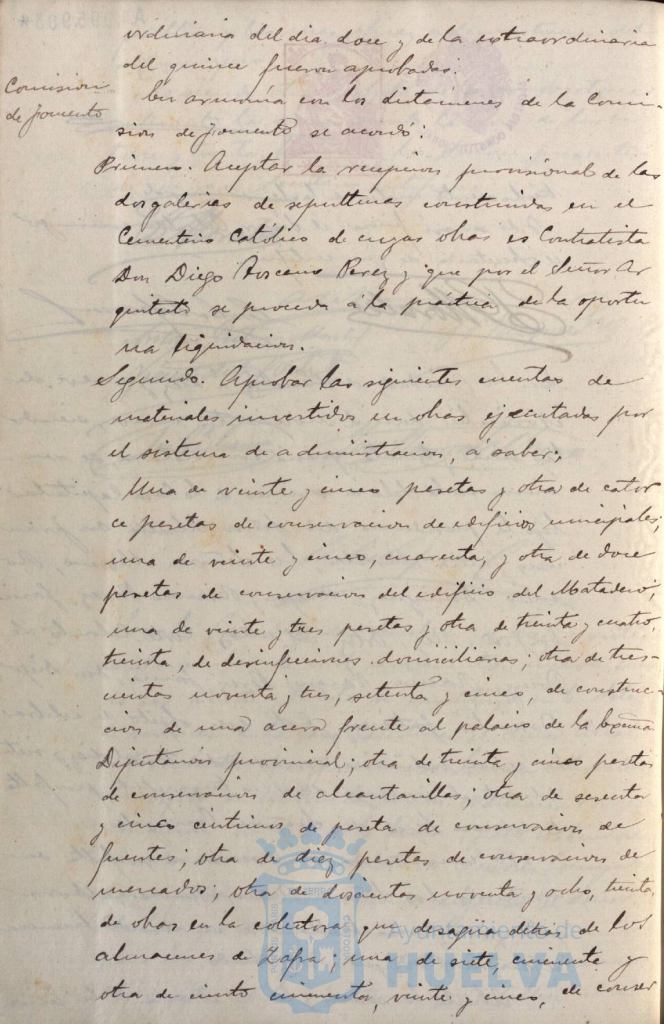 ordinaria del dia doce y de la extraordinaria
del quince fueron aprobadas.
Comision
de fomento
En armonía con los dictámenes de la Comi-
sion de fomento se acordó:
Primero. Aceptar la recepcion provisional de las
dos galerias de sepulturas construidas en el
Cementerio Católico de cuyas obras es Contratista
Don Diego Toscano Perez y que por el Señor Ar
quitecto se proceda á la práctica de la oportu
na liquidacion.
Segundo. Aprobar las siguientes cuentas de
materiales invertidos en obras ejecutadas por
el sistema de administracion, á saber:
Una de veinte y cinco pesetas y otra de cator
ce pesetas de conservacion de edificios municipales;
una de veinte y cinco, cuarenta, y otra de doce
pesetas de conservacion del edificio del Matadero;
una de veinte y tres pesetas y otra de treinta y cuatro,
treinta, de desinfecciones domiciliarias; otra de tres-
cientas noventa y tres, setenta y cinco, de construc-
cion de una acera frente al palacio de la Excma
Diputacion provincial; otra de treinta y cinco pesetas
de conservacion de alcantarillas; otra de sesenta
y cinco centimos de peseta de conservacion de
fuentes; otra de diez pesetas de conservacion de
mercados; otra de doscientas noventa y ocho, treinta
de obras en la colectora que desagüa detras de los
almacenes de Zafra; una de siete, cincuenta y
otra de ciento cincuenta, veinte y cinco, de conser
Ayuntamiento de
HUELVA